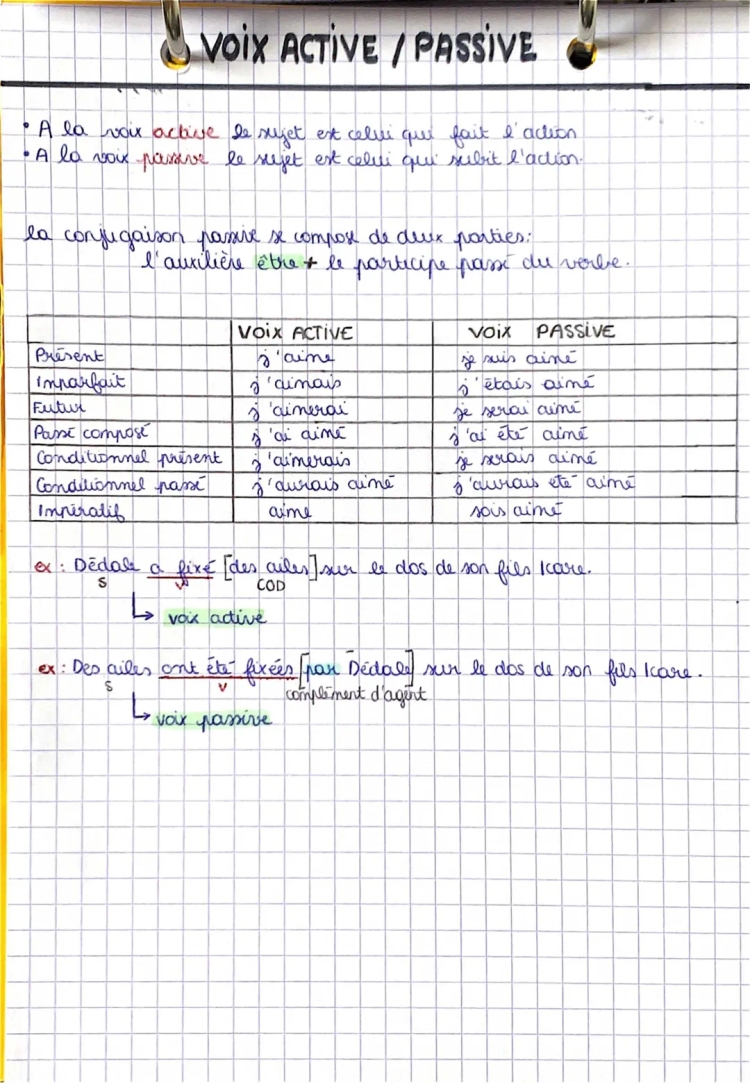 VOIX ACTIVE / PASSIVE
• A la voix active le sujet est celui qui fait l'action
• A la voix passive le sujet est celui qui subit l'action.
la conjugaison passive se compose de deux parties:
l'auxilière être + le participe passé du verbe.
VOIX ACTIVE VOIX PASSIVE
Présent j'aime je suis aimé
Imparfait j'aimais j'étais aimé
Futur j'aimerai je serai aimé
Passé composé j'ai aimé j'ai été aimé
Conditionnel présent j'aimerais je serais aimé
Conditionnel passé j'aurais aimé j'aurais été aimé
Impératif aime sois aimé
ex : Dédale a fixé [des ailes] sur le dos de son fils Icare.
S V COD
↳ voix active
ex : Des ailes ont été fixées [par Dédale] sur le dos de son fils Icare.
S V complément d'agent
↳ voix passive